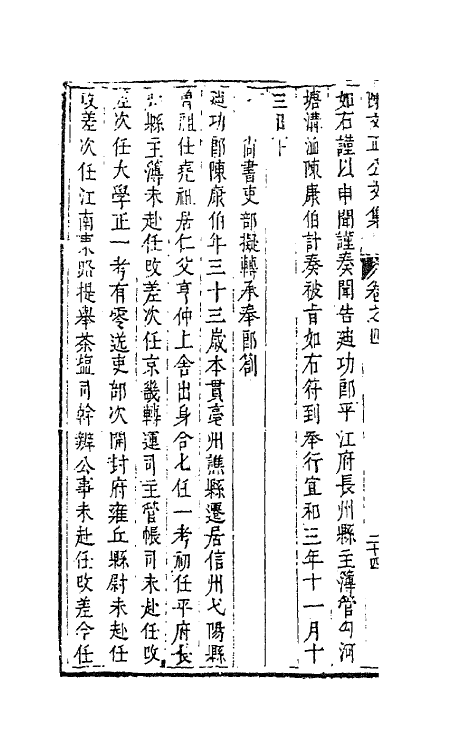 陳文正公文集 卷之四 二十四
如右謹以申聞謹奏聞告廸功郎平江府長州縣主簿管勾河
塘溝洫陳康伯計奏被旨如右符到奉行宜和三年十一月十
三日下
尚書吏部擬轉承奉郎劄
廸功郎陳康伯年三十三嵗本貫亳州譙縣遷居信州弋陽縣
曾祖仕堯祖居仁父亨仲上舍出身合七任一考初任平府長
州縣主簿未赴任改差次任京畿轉運司主管帳司未赴任改
差次任大學正一考有零送吏部次開封府雍丘縣尉未赴任
改差次任江南東路提舉茶塩司幹辦公事未赴任改差今任